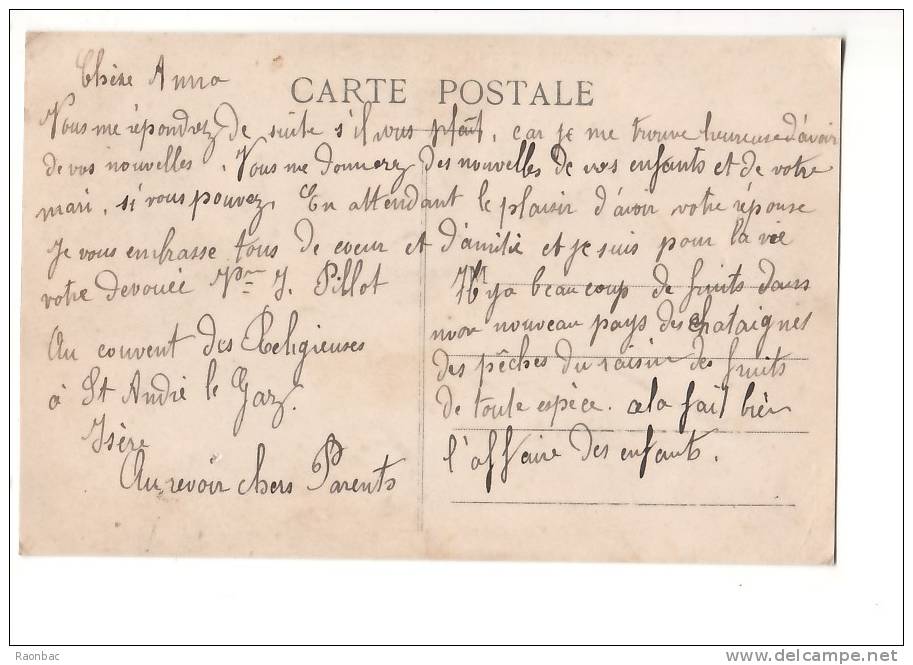 Chère Anna
CARTE POSTALE
Vous me répondrez de suite s'il vous plaît, car je me trouve heureuse d'avoir
de vos nouvelles. Vous me donnerez des nouvelles de vos enfants et de votre
mari, si vous pouvez. En attendant le plaisir d'avoir votre réponse
Je vous embrasse tous de coeur et d'amitié et je suis pour la vie
votre dévouée J. Pillot
Au couvent des Religieuses
à St André le Gaz.
Isère
Au revoir chers Parents
Il y a beaucoup de fruits dans
mon nouveau pays des chataignes
des pêches du raisin des fruits
de toute espèce. cela fait bien
l'affaire des enfants.
Raonbac
www.delcampe.net